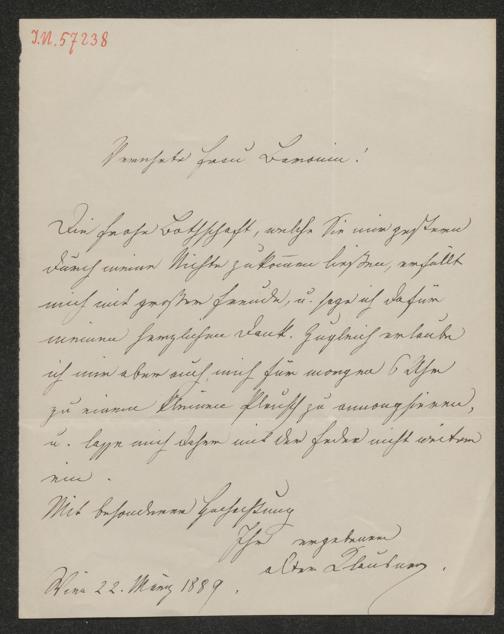 I.N. 57238
Verehrte Frau Baronin!
Die frohe Bothschaft, welche Sie mir gestern
durch meine Nichte zukommen ließen, erfüllt
mich mit großer Freude, u. sage ich dafür
meinen herzlichen Dank. Zugleich erlaube
ich mir aber auch mich für morgen 6 Uhr
zu einem kleinen Plausch zu annonciren,
u. lasse mich daher mit der Feder nicht weiter
ein.
Mit besonderer Hochachtung
Ihr ergebener
alter
Wien 22. März 1889.